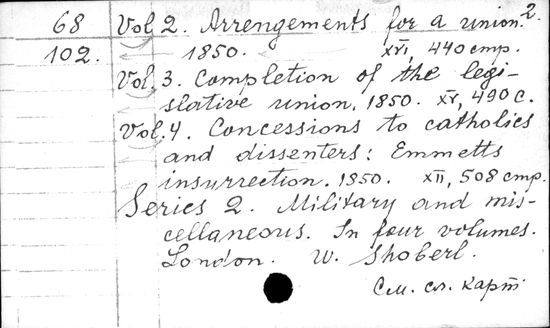 2.
68 Vol. 2. Arrengements for a union.
102. 1850. XVI, 440 стр.
Vol. 3. Completion of the legi-
slative union. 1850. XV, 490 с.
Vol. 4. Concessions to catholics
and dissenters: Emmetts
insurrection. 1850. XII, 508 стр.
Series 2. Military and mis-
cellaneous. In four volumes.
London. W. Shoberl.
См. сл. карт